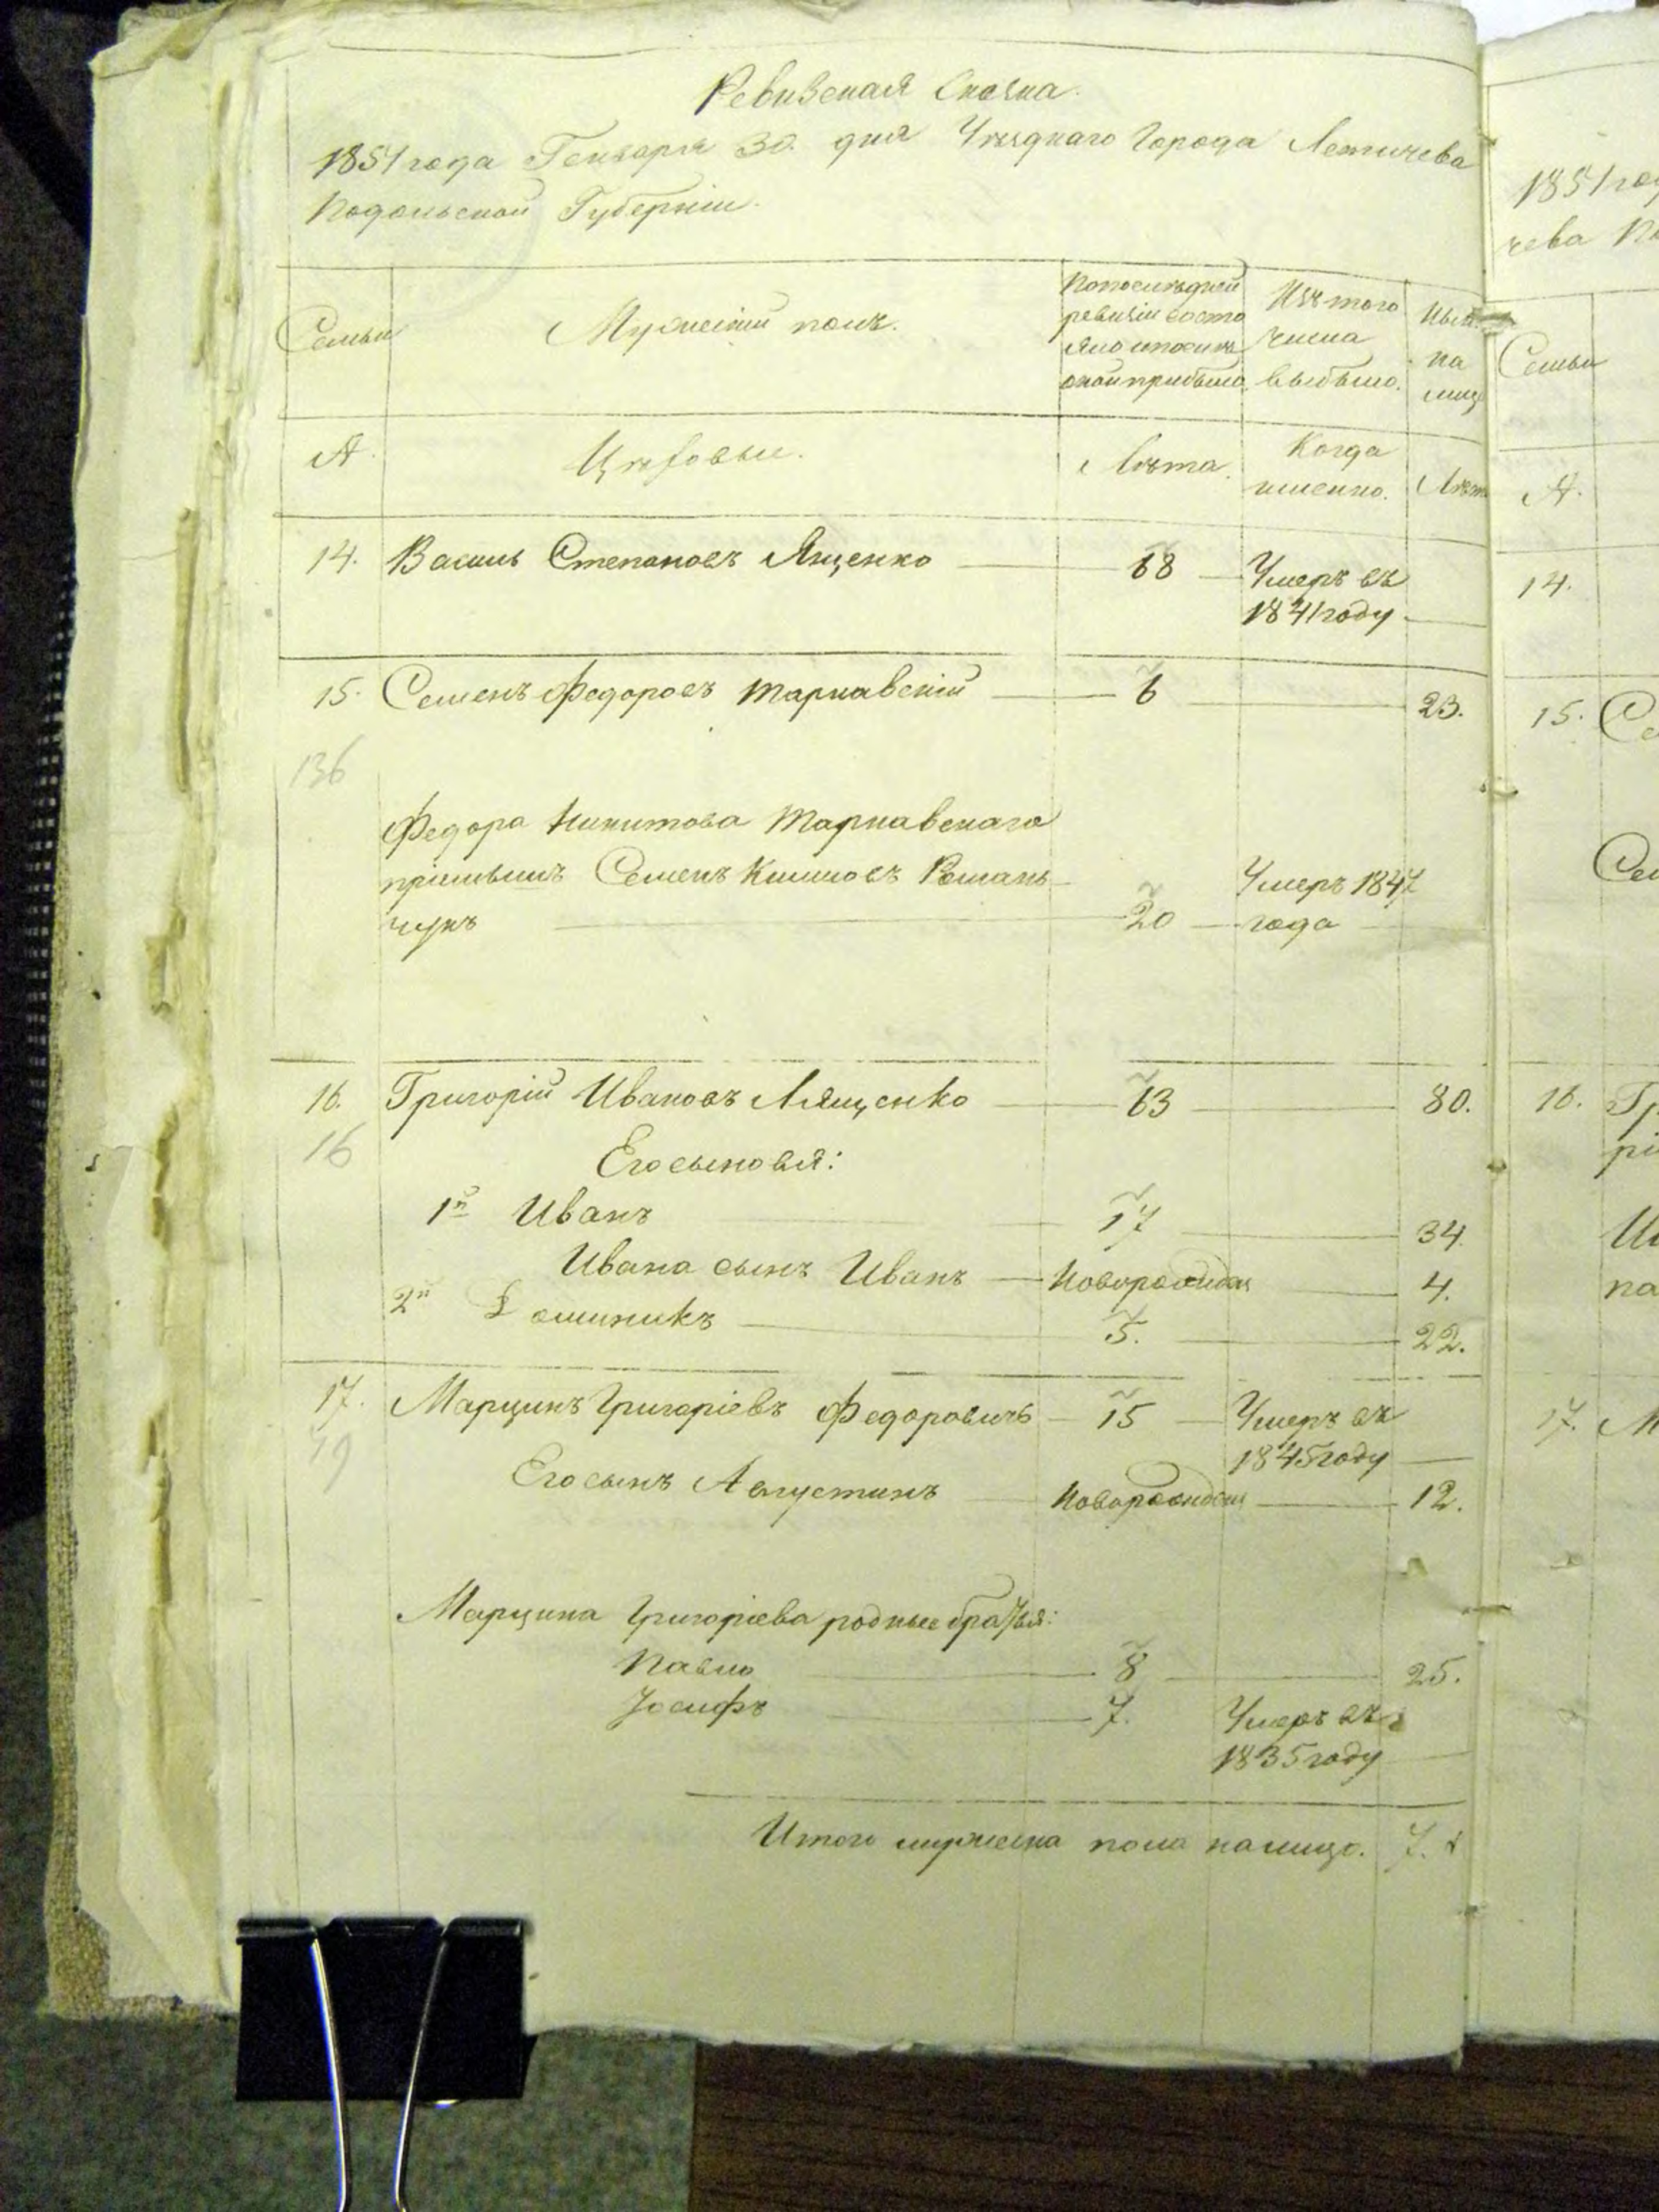 Ревизская Сказка.
1851 года Генваря 30. дня Уѣзднаго Города Летичева
Подольской Губерніи.
Семьи
Мужескій полъ.
Попослѣдней
ревизіи состо
яло ипослѣ
оной прибыло.
Изъ того
числа
выбыло.
Нын.
на
лицо
А.
Лѣта.
Когда
именно.
Лѣт
14. Василь Степановъ Ященко 68 Умеръ въ
1841 году
15. Семенъ Федоровъ Тарнавскій 6 23.
136
Федора Никитова Тарнавскаго
пріимышъ Семенъ Климовъ Романь
чукъ 20 Умеръ 1847
года
16. Григорій Ивановъ Лященко 63 80.
16 Его сыновья:
1й Иванъ 17 34.
Ивана сынъ Иванъ Новорожден 4.
2й Доминикъ 5. 22.
17. Марцинъ Григоріевъ Федоровичъ 15 Умеръ въ
1845 году
79
Его сынъ Августинъ Новорожден 12.
Марцина Григоріева родные братья:
Павло 8 25.
Іосифъ 7. Умеръ въ
1835 году
Итого мужеска пола налицо. 7.
1851 год
чева По
Семьи
А.
14.
15. Се
Сем
16. Гр
рі
Ив
на
17. М